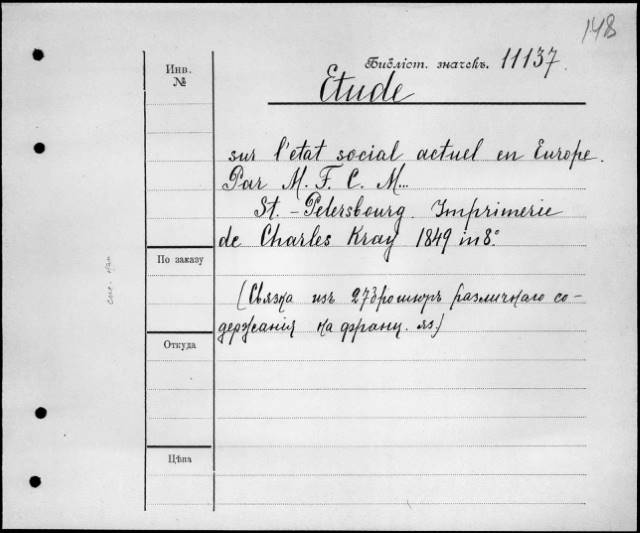 148
Инв. №
Библіот. значекъ. 11137.
Etude
sur l'état social actuel en Europe.
Par M. F. C. M...
St. - Petersbourg. Imprimerie
de Charles Kray 1849 in 8°.
По заказу
(Связка изъ 27 брошюръ различнаго со-
держанія на франц. яз.)
Откуда
Цѣна